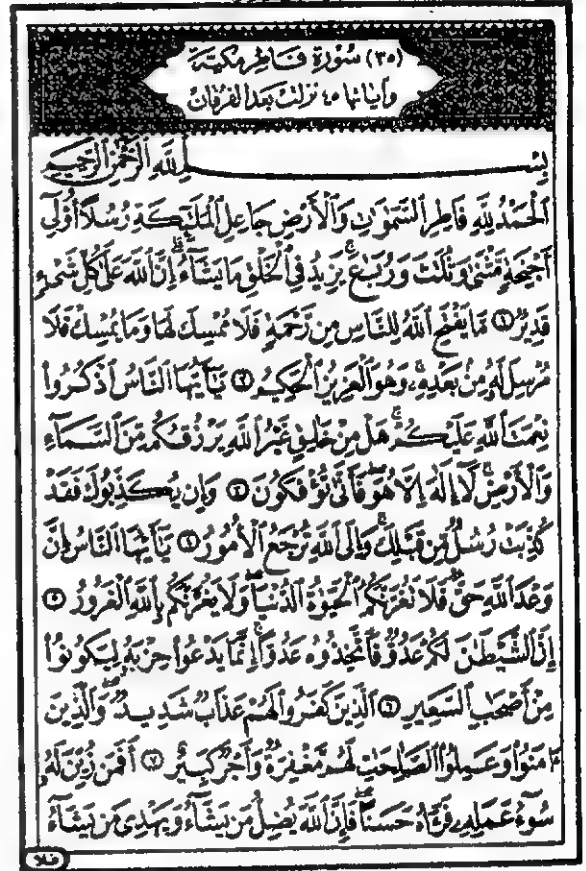 (٣٥) سُورَة فَاطِر مَكيَّة
وَآيَاتهَا ٤٥ نَزَلتْ بَعْدَ الفُرقَان
بِسْمِ ٱللَّهِ ٱلرَّحْمَٰنِ ٱلرَّحِيمِ
ٱلْحَمْدُ لِلَّهِ فَاطِرِ ٱلسَّمَٰوَٰتِ وَٱلْأَرْضِ جَاعِلِ ٱلْمَلَٰٓئِكَةِ رُسُلًا أُو۟لِىٓ
أَجْنِحَةٍ مَّثْنَىٰ وَثُلَٰثَ وَرُبَٰعَ ۚ يَزِيدُ فِى ٱلْخَلْقِ مَا يَشَآءُ ۚ إِنَّ ٱللَّهَ عَلَىٰ كُلِّ شَىْءٍ
قَدِيرٌ ١ مَّا يَفْتَحِ ٱللَّهُ لِلنَّاسِ مِن رَّحْمَةٍ فَلَا مُمْسِكَ لَهَا وَمَا يُمْسِكْ فَلَا
مُرْسِلَ لَهُۥ مِنۢ بَعْدِهِۦ ۚ وَهُوَ ٱلْعَزِيزُ ٱلْحَكِيمُ ٢ يَٰٓأَيُّهَا ٱلنَّاسُ ٱذْكُرُوا۟
نِعْمَتَ ٱللَّهِ عَلَيْكُمْ ۚ هَلْ مِنْ خَٰلِقٍ غَيْرُ ٱللَّهِ يَرْزُقُكُم مِّنَ ٱلسَّمَآءِ
وَٱلْأَرْضِ ۚ لَآ إِلَٰهَ إِلَّا هُوَ ۖ فَأَنَّىٰ تُؤْفَكُونَ ٣ وَإِن يُكَذِّبُوكَ فَقَدْ
كُذِّبَتْ رُسُلٌ مِّن قَبْلِكَ ۚ وَإِلَى ٱللَّهِ تُرْجَعُ ٱلْأُمُورُ ٤ يَٰٓأَيُّهَا ٱلنَّاسُ إِنَّ
وَعْدَ ٱللَّهِ حَقٌّ ۖ فَلَا تَغُرَّنَّكُمُ ٱلْحَيَوٰةُ ٱلدُّنْيَا ۖ وَلَا يَغُرَّنَّكُم بِٱللَّهِ ٱلْغَرُورُ ٥
إِنَّ ٱلشَّيْطَٰنَ لَكُمْ عَدُوٌّ فَٱتَّخِذُوهُ عَدُوًّا ۚ إِنَّمَا يَدْعُوا۟ حِزْبَهُۥ لِيَكُونُوا۟
مِنْ أَصْحَٰبِ ٱلسَّعِيرِ ٦ ٱلَّذِينَ كَفَرُوا۟ لَهُمْ عَذَابٌ شَدِيدٌ ۖ وَٱلَّذِينَ
ءَامَنُوا۟ وَعَمِلُوا۟ ٱلصَّٰلِحَٰتِ لَهُم مَّغْفِرَةٌ وَأَجْرٌ كَبِيرٌ ٧ أَفَمَن زُيِّنَ لَهُۥ
سُوٓءُ عَمَلِهِۦ فَرَءَاهُ حَسَنًا ۖ فَإِنَّ ٱللَّهَ يُضِلُّ مَن يَشَآءُ وَيَهْدِى مَن يَشَآءُ
فلا